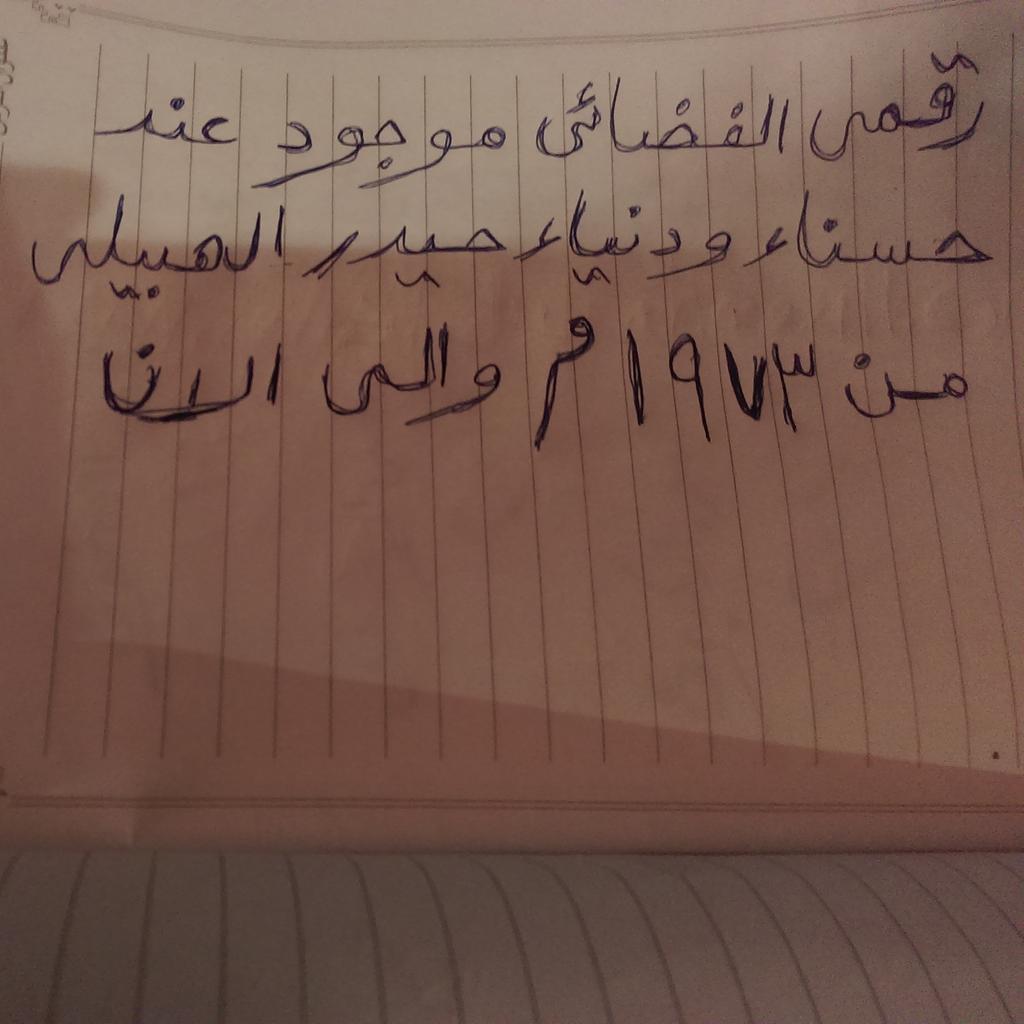 رقمى الفضائى موجود عند
حسناء ودنياء حيدر الهبيلى
من ١٩٧٣م والى الان